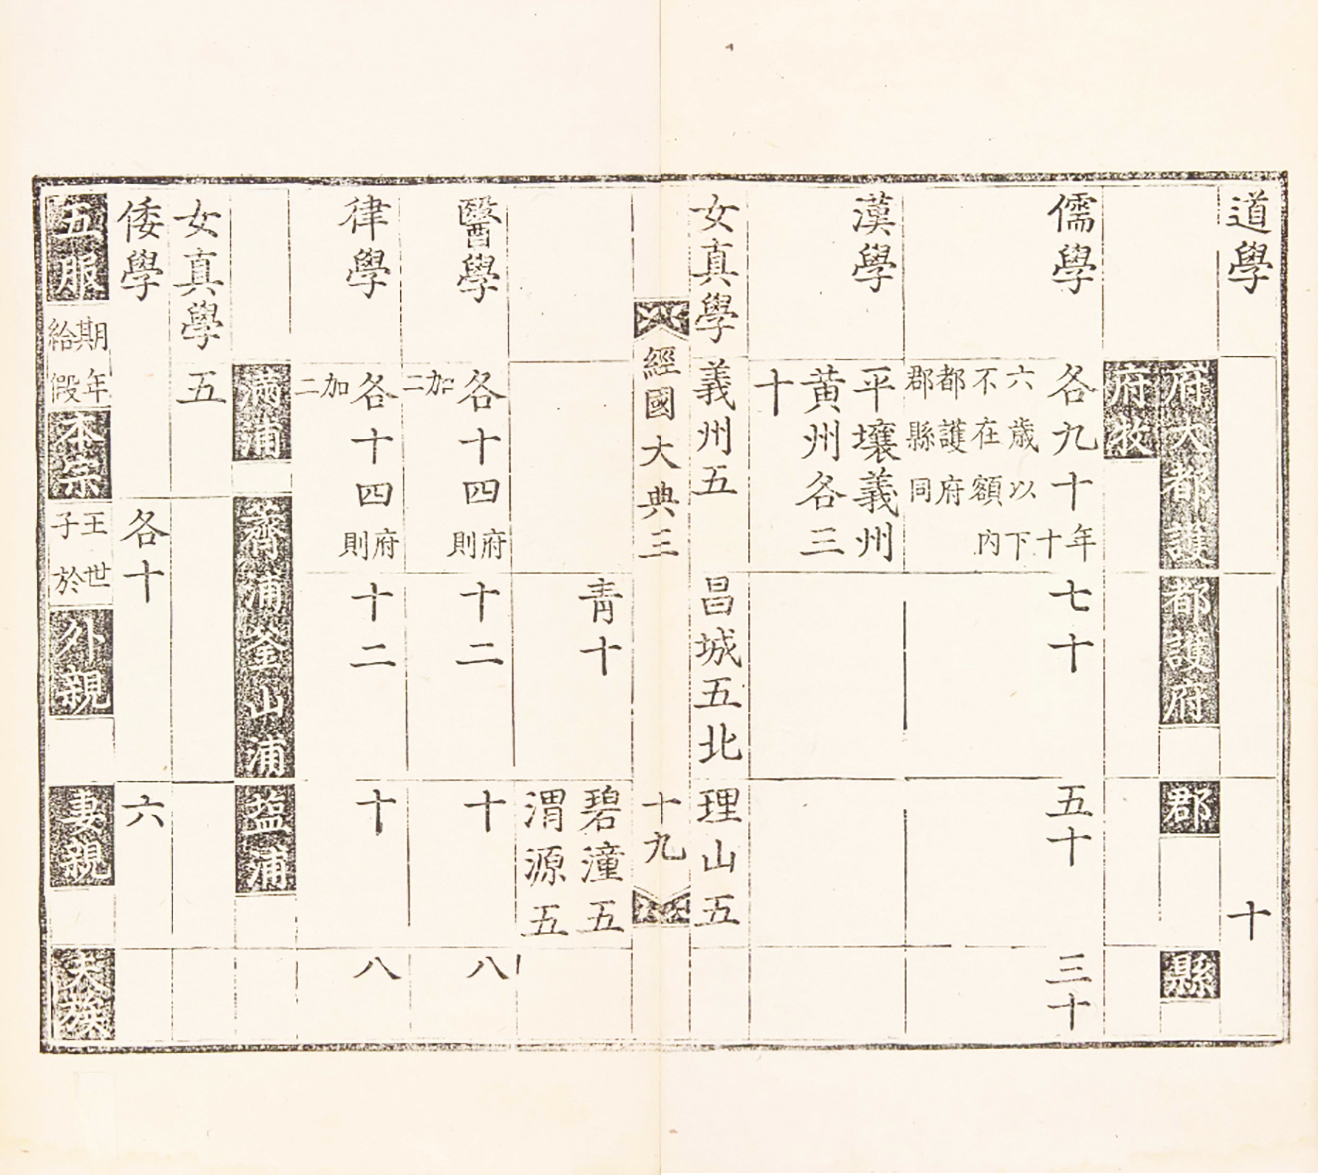 道學 十
府大都護 都護府 郡 縣
府牧
儒學 各九十年十 七十 五十 三十
六歲以下
不在額內
都護府
郡縣同
漢學 平壤義州
黃州各三
十
女真學 義州五 昌城五北 理山五
經國大典三 十九
青十 碧潼五
渭源五
醫學 各十四府則 十二 十 八
加二
律學 各十四府則 十二 十 八
加二
滿浦 薺浦釜山浦 塩浦
女真學 五
倭學 各十 六
五服 期年給假 本宗 王世子於 外親 妻親 夫族